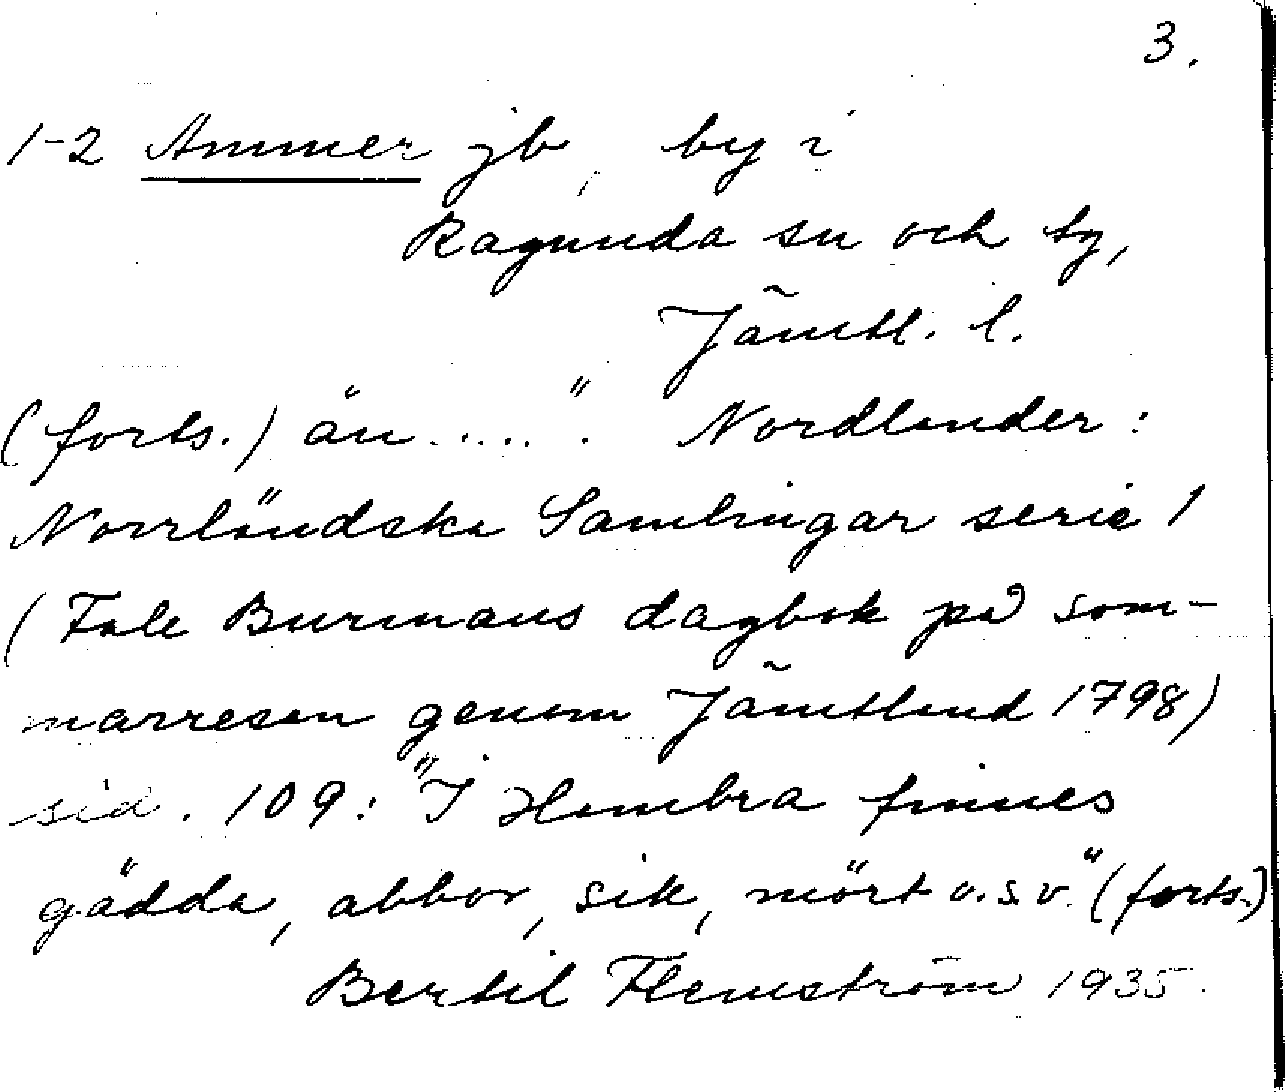 3.
1-2 Ammer jb, by i
Ragunda sn och tg,
Jämtl. l.
(forts.) än.....". Nordlander:
Norrländska Samlingar serie 1
(Fale Burmans dagbok på som-
marresan genom Jämtland 1798)
sid. 109: "I Hambra finnes
gädda, abbor, sik, mört o.s.v." (forts.)
Bertil Flemström 1935.